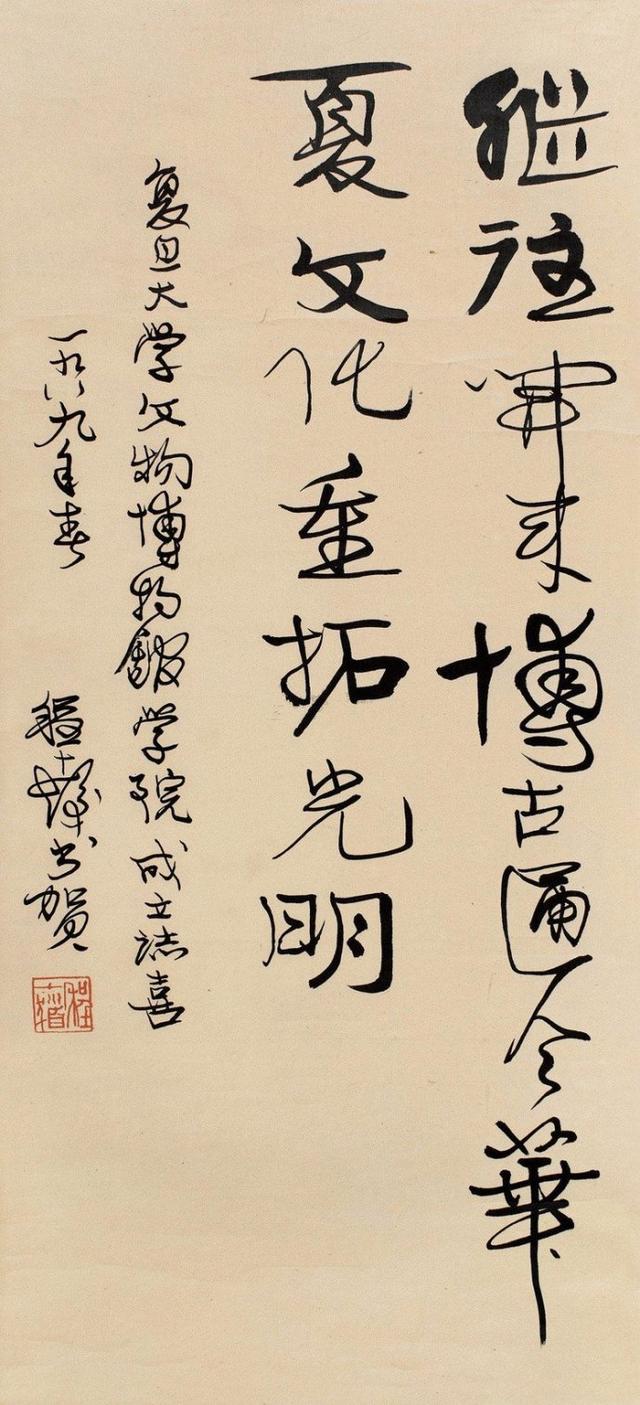 继往開来博古通今華
夏文化重拓光明
复旦大学文物博物館学院成立誌喜
一九八九年春
程十髮书賀